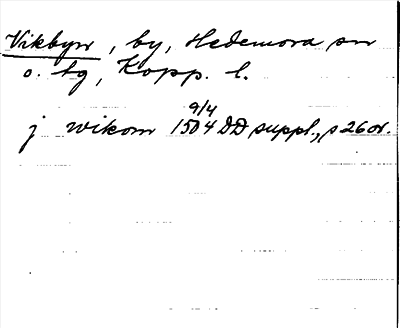 Vikbyn, by, Hedemora sn
o. tg, Kopp. l.
9/4
j wikom 1504 DD suppl., s 26 or.